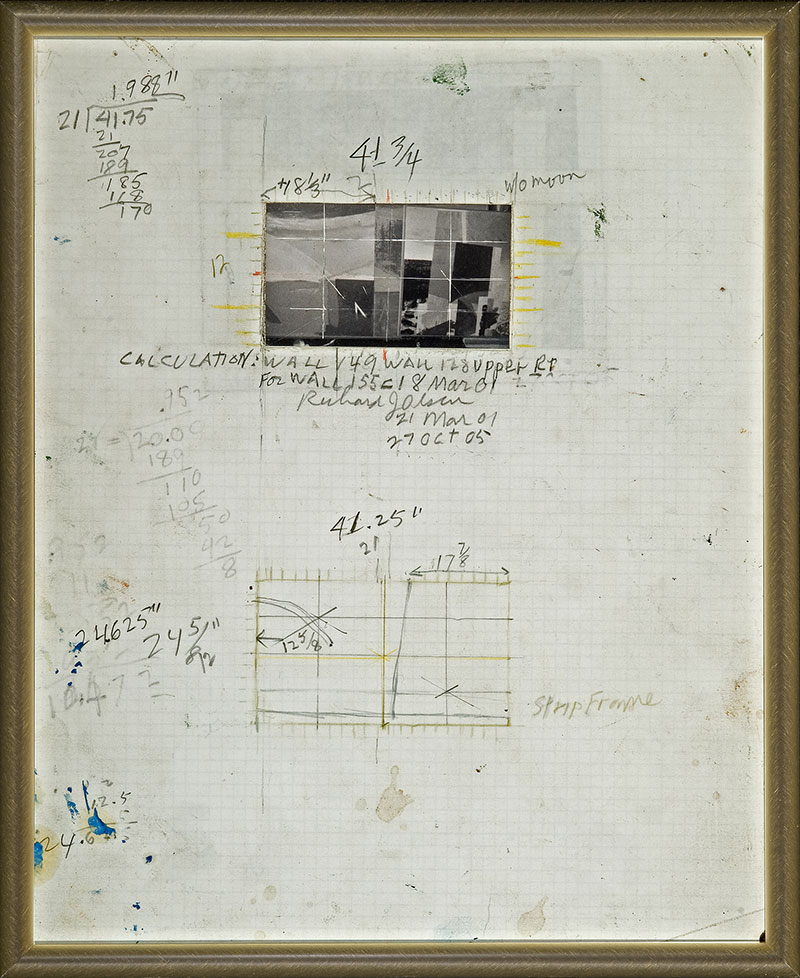 1.988"
21 41.75
21
207
189
185
168
170
41 3/4
18 1/3"
w/o moon
12
CALCULATION: WALL 149 WALL 128 upper Rt
For WALL 155 18 Mar 01
Richard J Olsen
21 Mar 01
27 Oct 05
.952
20.00
189
110
105
50
42
8
41.25"
21
17 7/8
12 5/8
24625"
24 5/"
Strip Frame
12.5
24.6